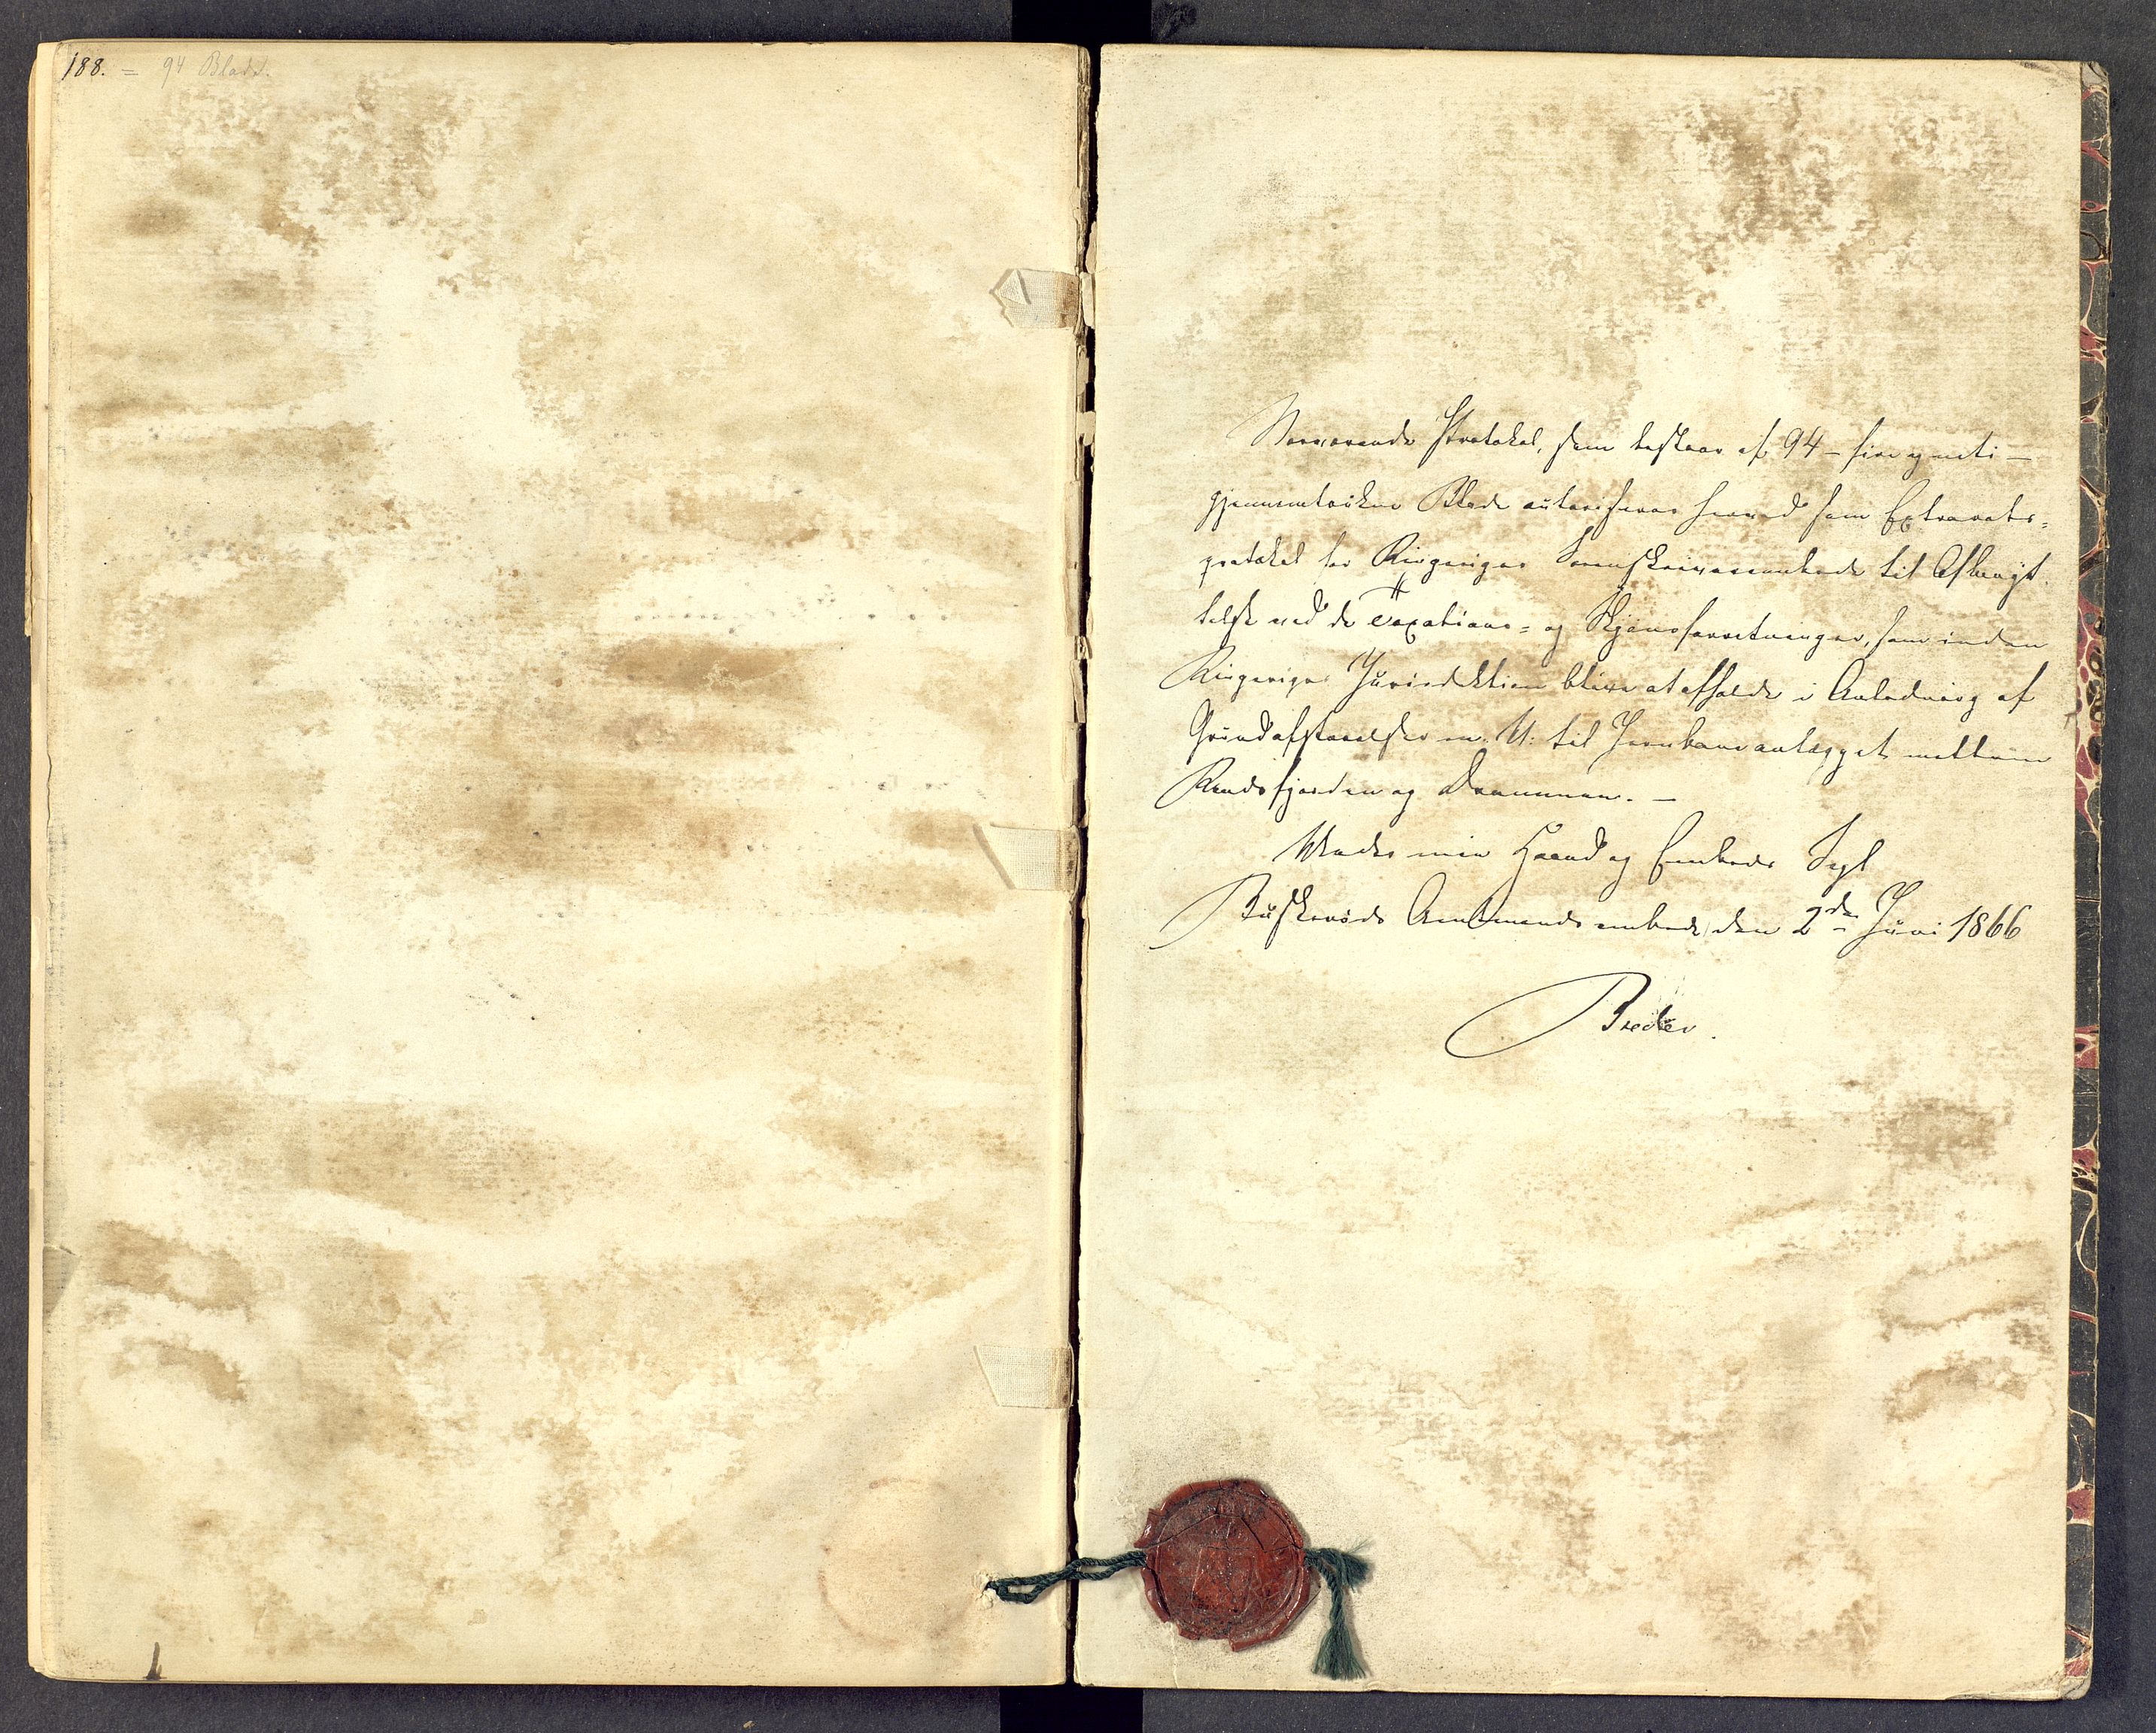 188. = 94 Blade.
Nærværende Protokol, som bestaar af 94 - fire og niti -
gjennemtrukne Blade autoriseres herved som Extrarets-
protokol for Ringeriges Sorenskriverembede til Afbenyt-
telse ved de Taxations- og Skjønsforretninger, som inden
Ringeriges Jurisdiktion blive at afholde i Anledning af
Grundafstaaelser m. M. til Jernbaneanlægget mellem
Randsfjorden og Drammen. -
Under min Haand og Embeds Segl
Buskeruds Amtmandsembede, den 2den Juni 1866